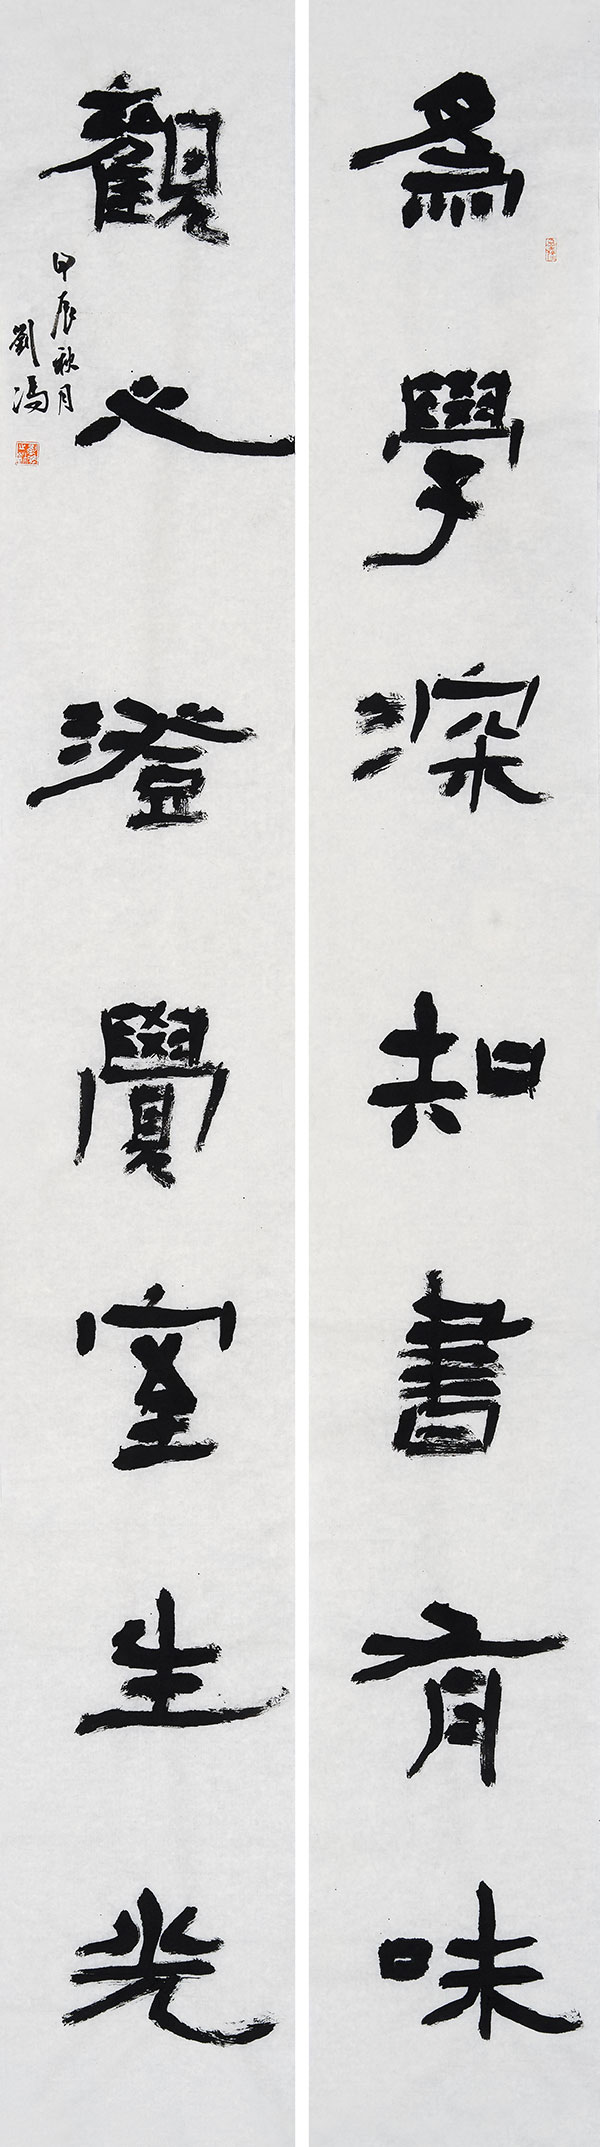 為學深知書有味
觀心澄覺室生光
甲辰秋月
劉馮